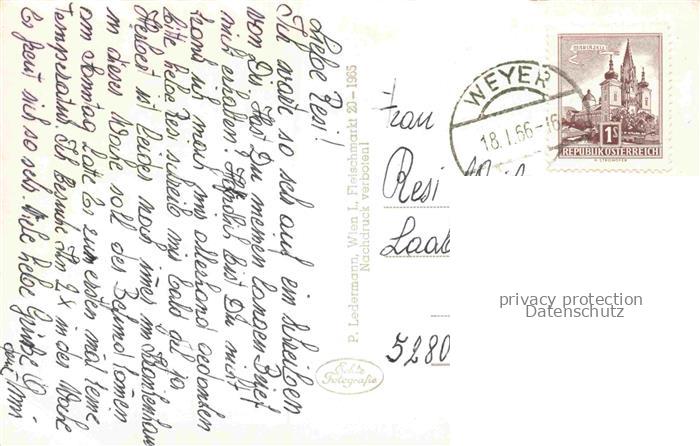 Liebe Resi!
Ich warte so sehr auf ein schreiben
von Dir. Hast Du meinen langen Brief
nicht erhalten? Hoffentlich bist Du nicht
krank ich mach mir allerhand gedanken
bitte liebe Resi schreib mir bald
Herbert ist leider noch immer im Krankenhaus
in dieser Woche soll der Befund kommen
am Sonntag hatte Er zum ersten mal keine
Temperatur. Ich besuche Ihn 2 x in der Woche
Er freut sich so sehr. Viele liebe Grüße
P. Ledermann, Wien I., Fleischmarkt 20 - 1965
Nachdruck verboten!
Echte
Fotografie
WEYER
18.I.66-16
MARIAZELL
1S
REPUBLIK ÖSTERREICH
Frau
Resi
Laab
5280
privacy protection
Datenschutz